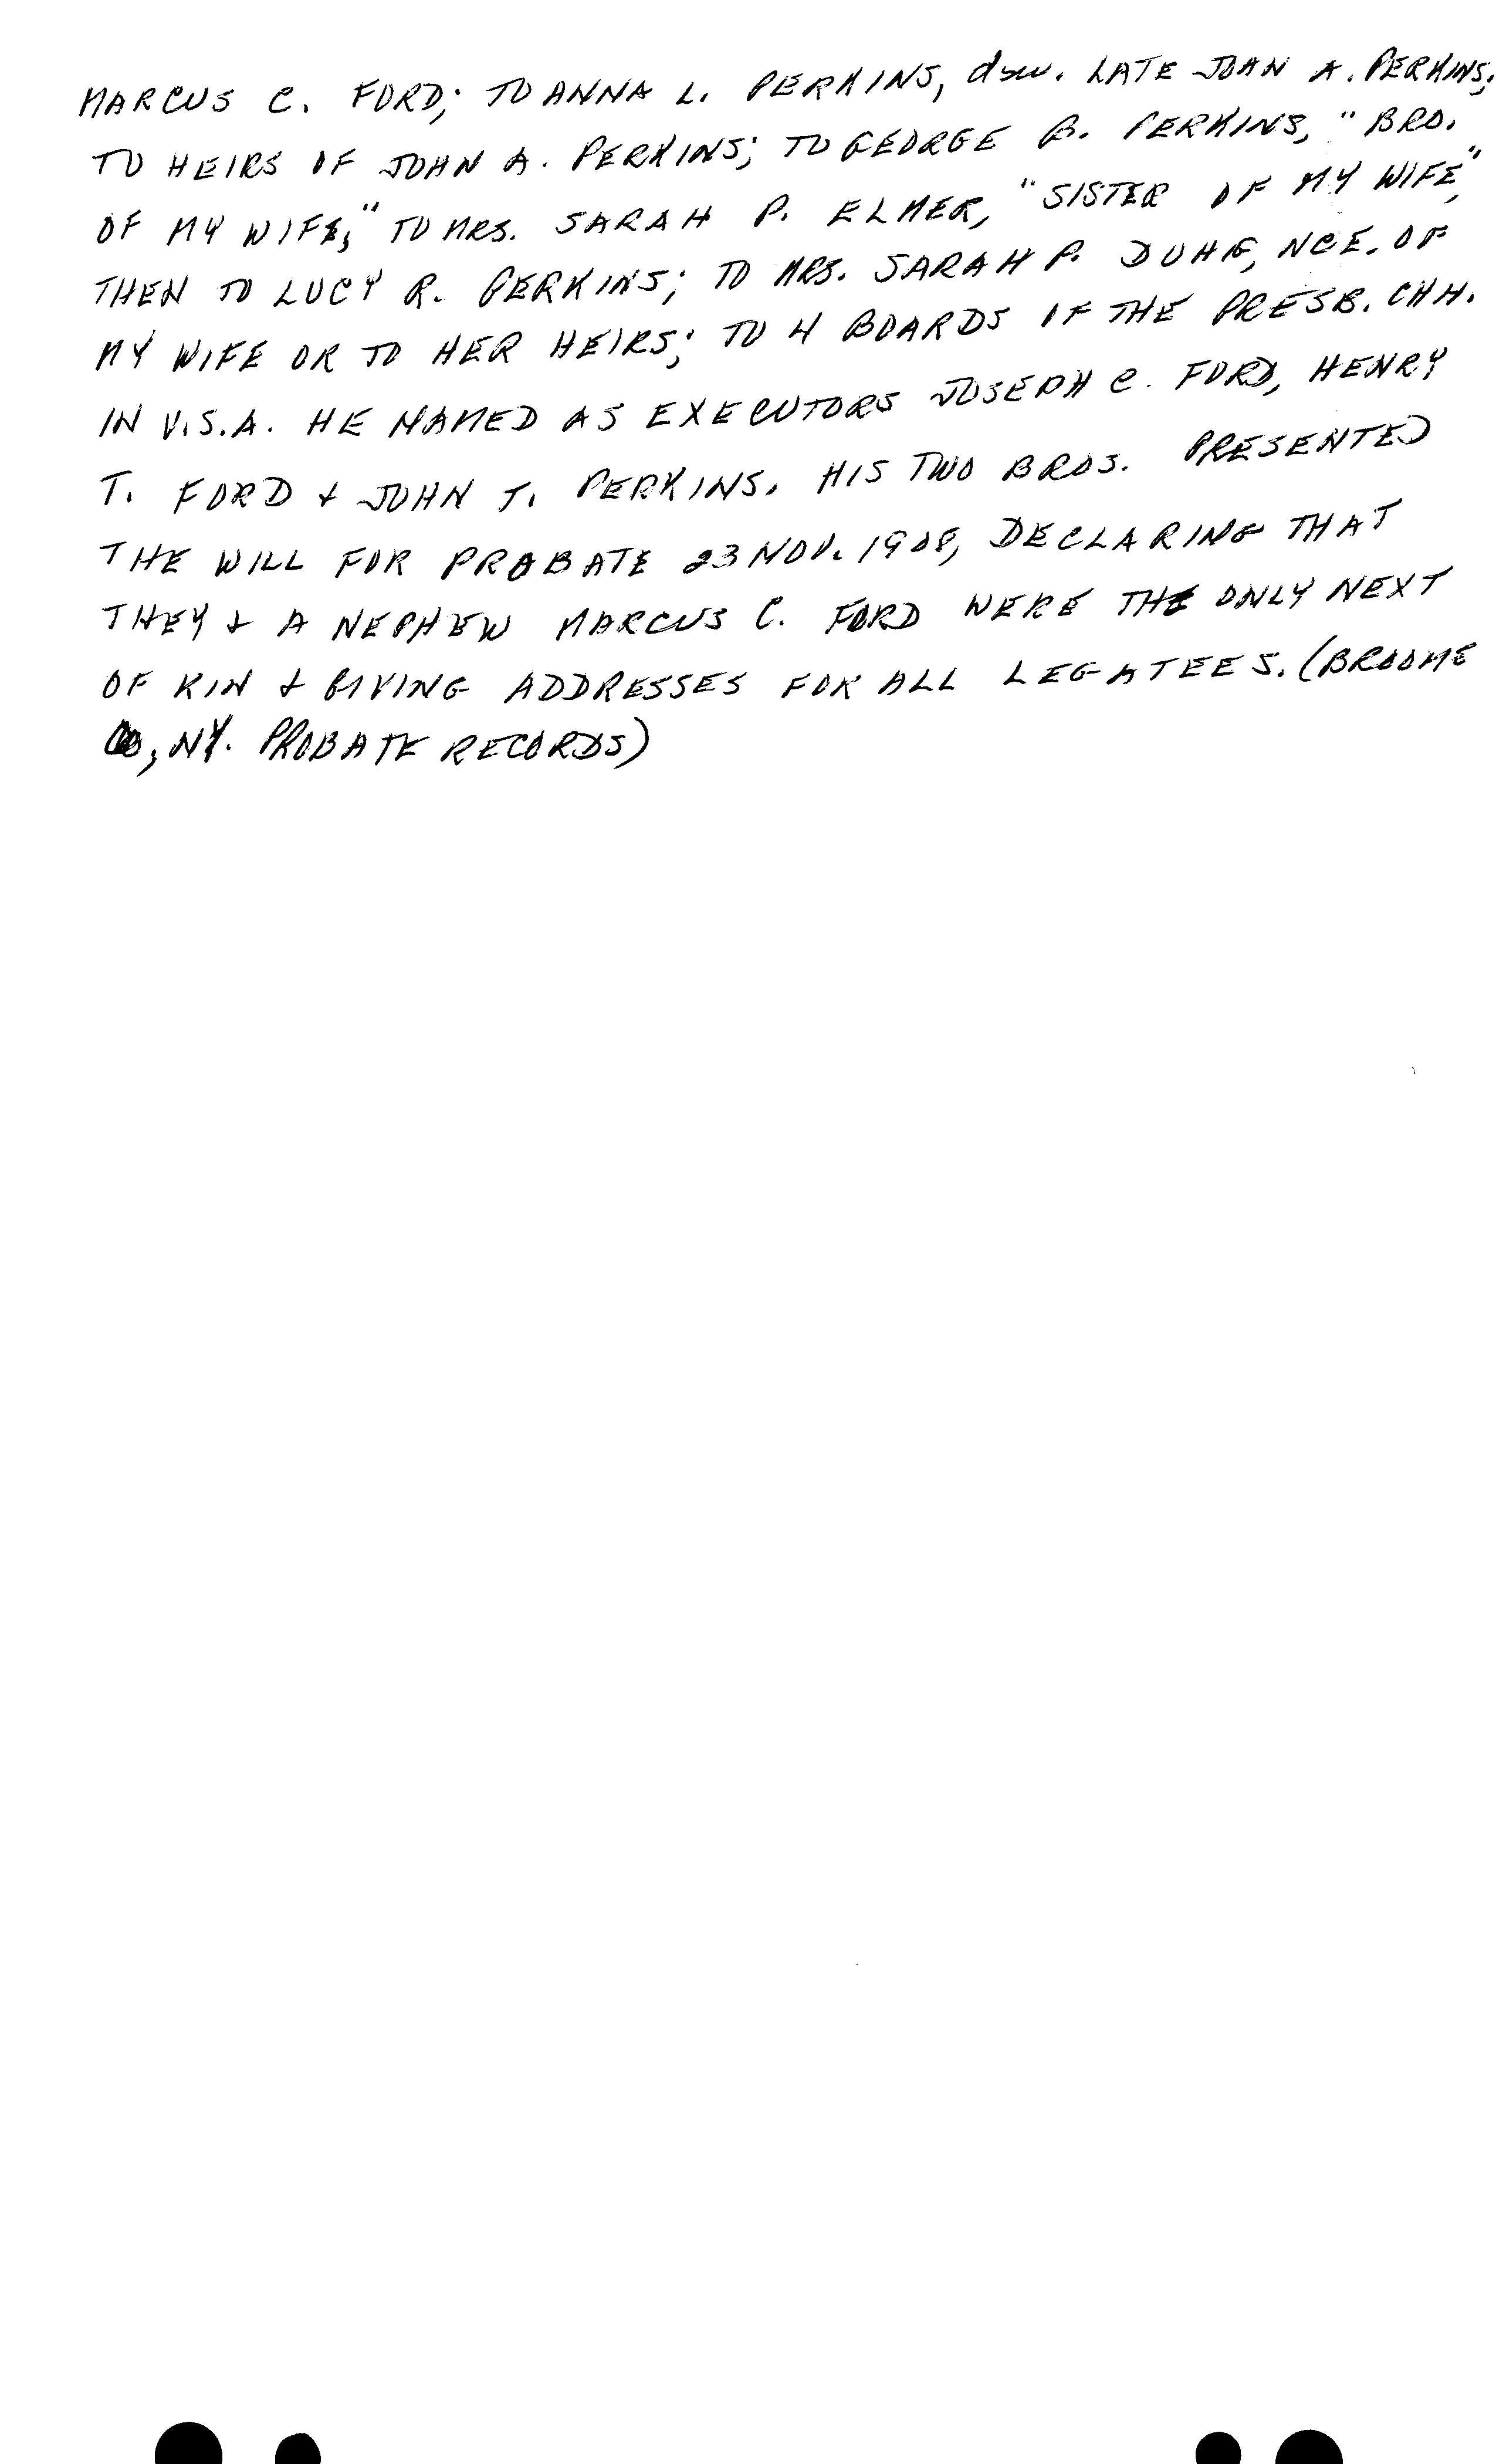 MARCUS C. FORD; TO ANNA L. PERKINS, dau. LATE JOHN A. PERKINS;
TO HEIRS OF JOHN A. PERKINS; TO GEORGE B. PERKINS, "BRO.
OF MY WIFE," TO MRS. SARAH P. ELMER, "SISTER OF MY WIFE,"
THEN TO LUCY R. PERKINS; TO MRS. SARAH P. DUHG, NCE. OF
MY WIFE OR TO HER HEIRS; TO 4 BOARDS OF THE PRESB. CHH.
IN U.S.A. HE NAMED AS EXECUTORS JOSEPH C. FORD, HENRY
T. FORD & JOHN T. PERKINS. HIS TWO BROS. PRESENTED
THE WILL FOR PROBATE 23 NOV. 1908, DECLARING THAT
THEY & A NEPHEW MARCUS C. FORD WERE THE ONLY NEXT
OF KIN & GIVING ADDRESSES FOR ALL LEGATEES. (BROOME
CO, NY. PROBATE RECORDS)